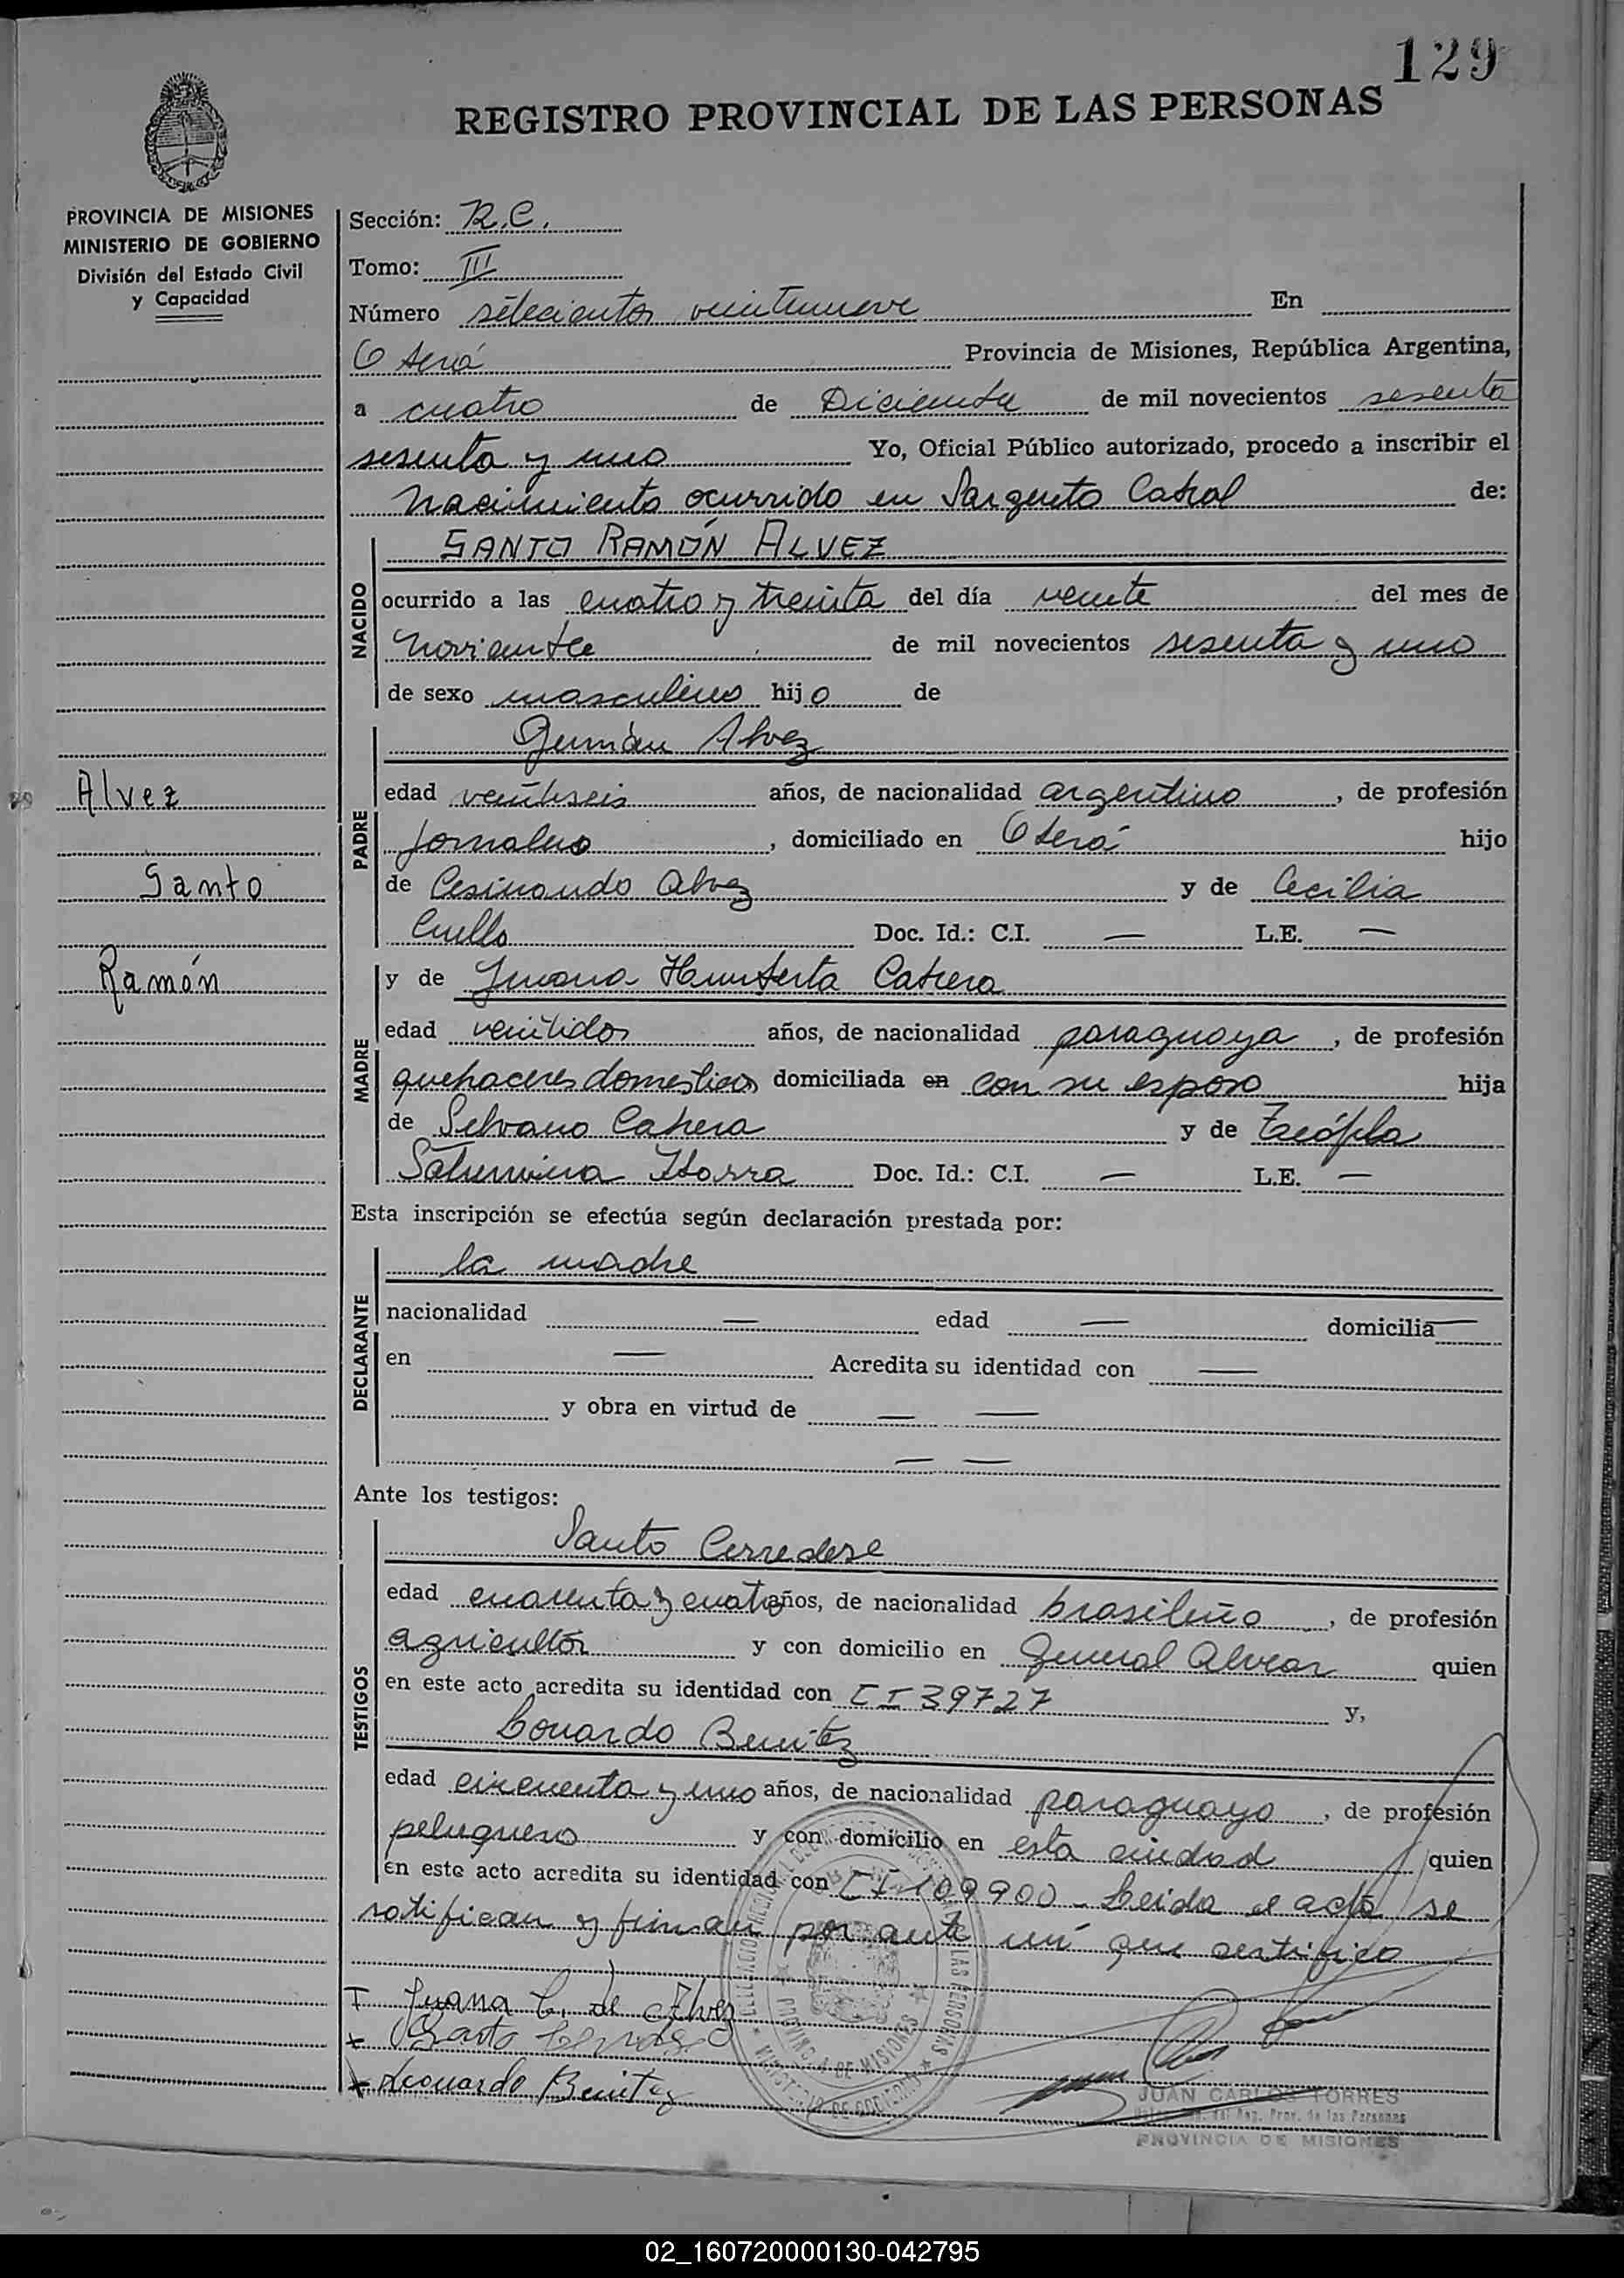 129
REGISTRO PROVINCIAL DE LAS PERSONAS
PROVINCIA DE MISIONES
MINISTERIO DE GOBIERNO
División del Estado Civil
y Capacidad
Alvez
Santo
Ramón
Sección: R.C.
Tomo: III
Número setecientos veintinueve En
Oberá Provincia de Misiones, República Argentina,
a cuatro de Diciembre de mil novecientos sesenta
sesenta y uno Yo, Oficial Público autorizado, procedo a inscribir el
nacimiento ocurrido en Sargento Cabral de:
NACIDO
SANTO RAMÓN ALVEZ
ocurrido a las cuatro y treinta del día veinte del mes de
noviembre de mil novecientos sesenta y uno
de sexo masculino hijo de
PADRE
Germán Alvez
edad veintiseis años, de nacionalidad argentino, de profesión
jornalero, domiciliado en Oberá hijo
de Cesinando Alvez y de Cecilia
Cuello Doc. Id.: C.I. — L.E. —
MADRE
y de Juana Humberta Cabrera
edad veintidos años, de nacionalidad paraguaya, de profesión
quehaceres domesticos domiciliada en con su esposo hija
de Selvano Cabrera y de Teófila
Saturnina Ibarra Doc. Id.: C.I. — L.E. —
Esta inscripción se efectúa según declaración prestada por:
DECLARANTE
la madre
nacionalidad — edad — domicilia —
en — Acredita su identidad con —
y obra en virtud de — —
— —
Ante los testigos:
TESTIGOS
Santo
edad cuarenta y cuatro años, de nacionalidad brasileño, de profesión
agricultor y con domicilio en General Alvear quien
en este acto acredita su identidad con CI 39727 y,
Leonardo Benitez
edad cincuenta y uno años, de nacionalidad paraguayo, de profesión
peluquero y con domicilio en esta ciudad quien
en este acto acredita su identidad con CI 109900 - Leida el acta se
ratifican y firman por ante mí que certifico
Juana C. de Alvez
Santo
Leonardo Benitez
PROVINCIA DE MISIONES
MINISTERIO DE GOBIERNO
JUAN CARLOS TORRES
del Reg. Prov. de las Personas
PROVINCIA DE MISIONES
02_160720000130-042795